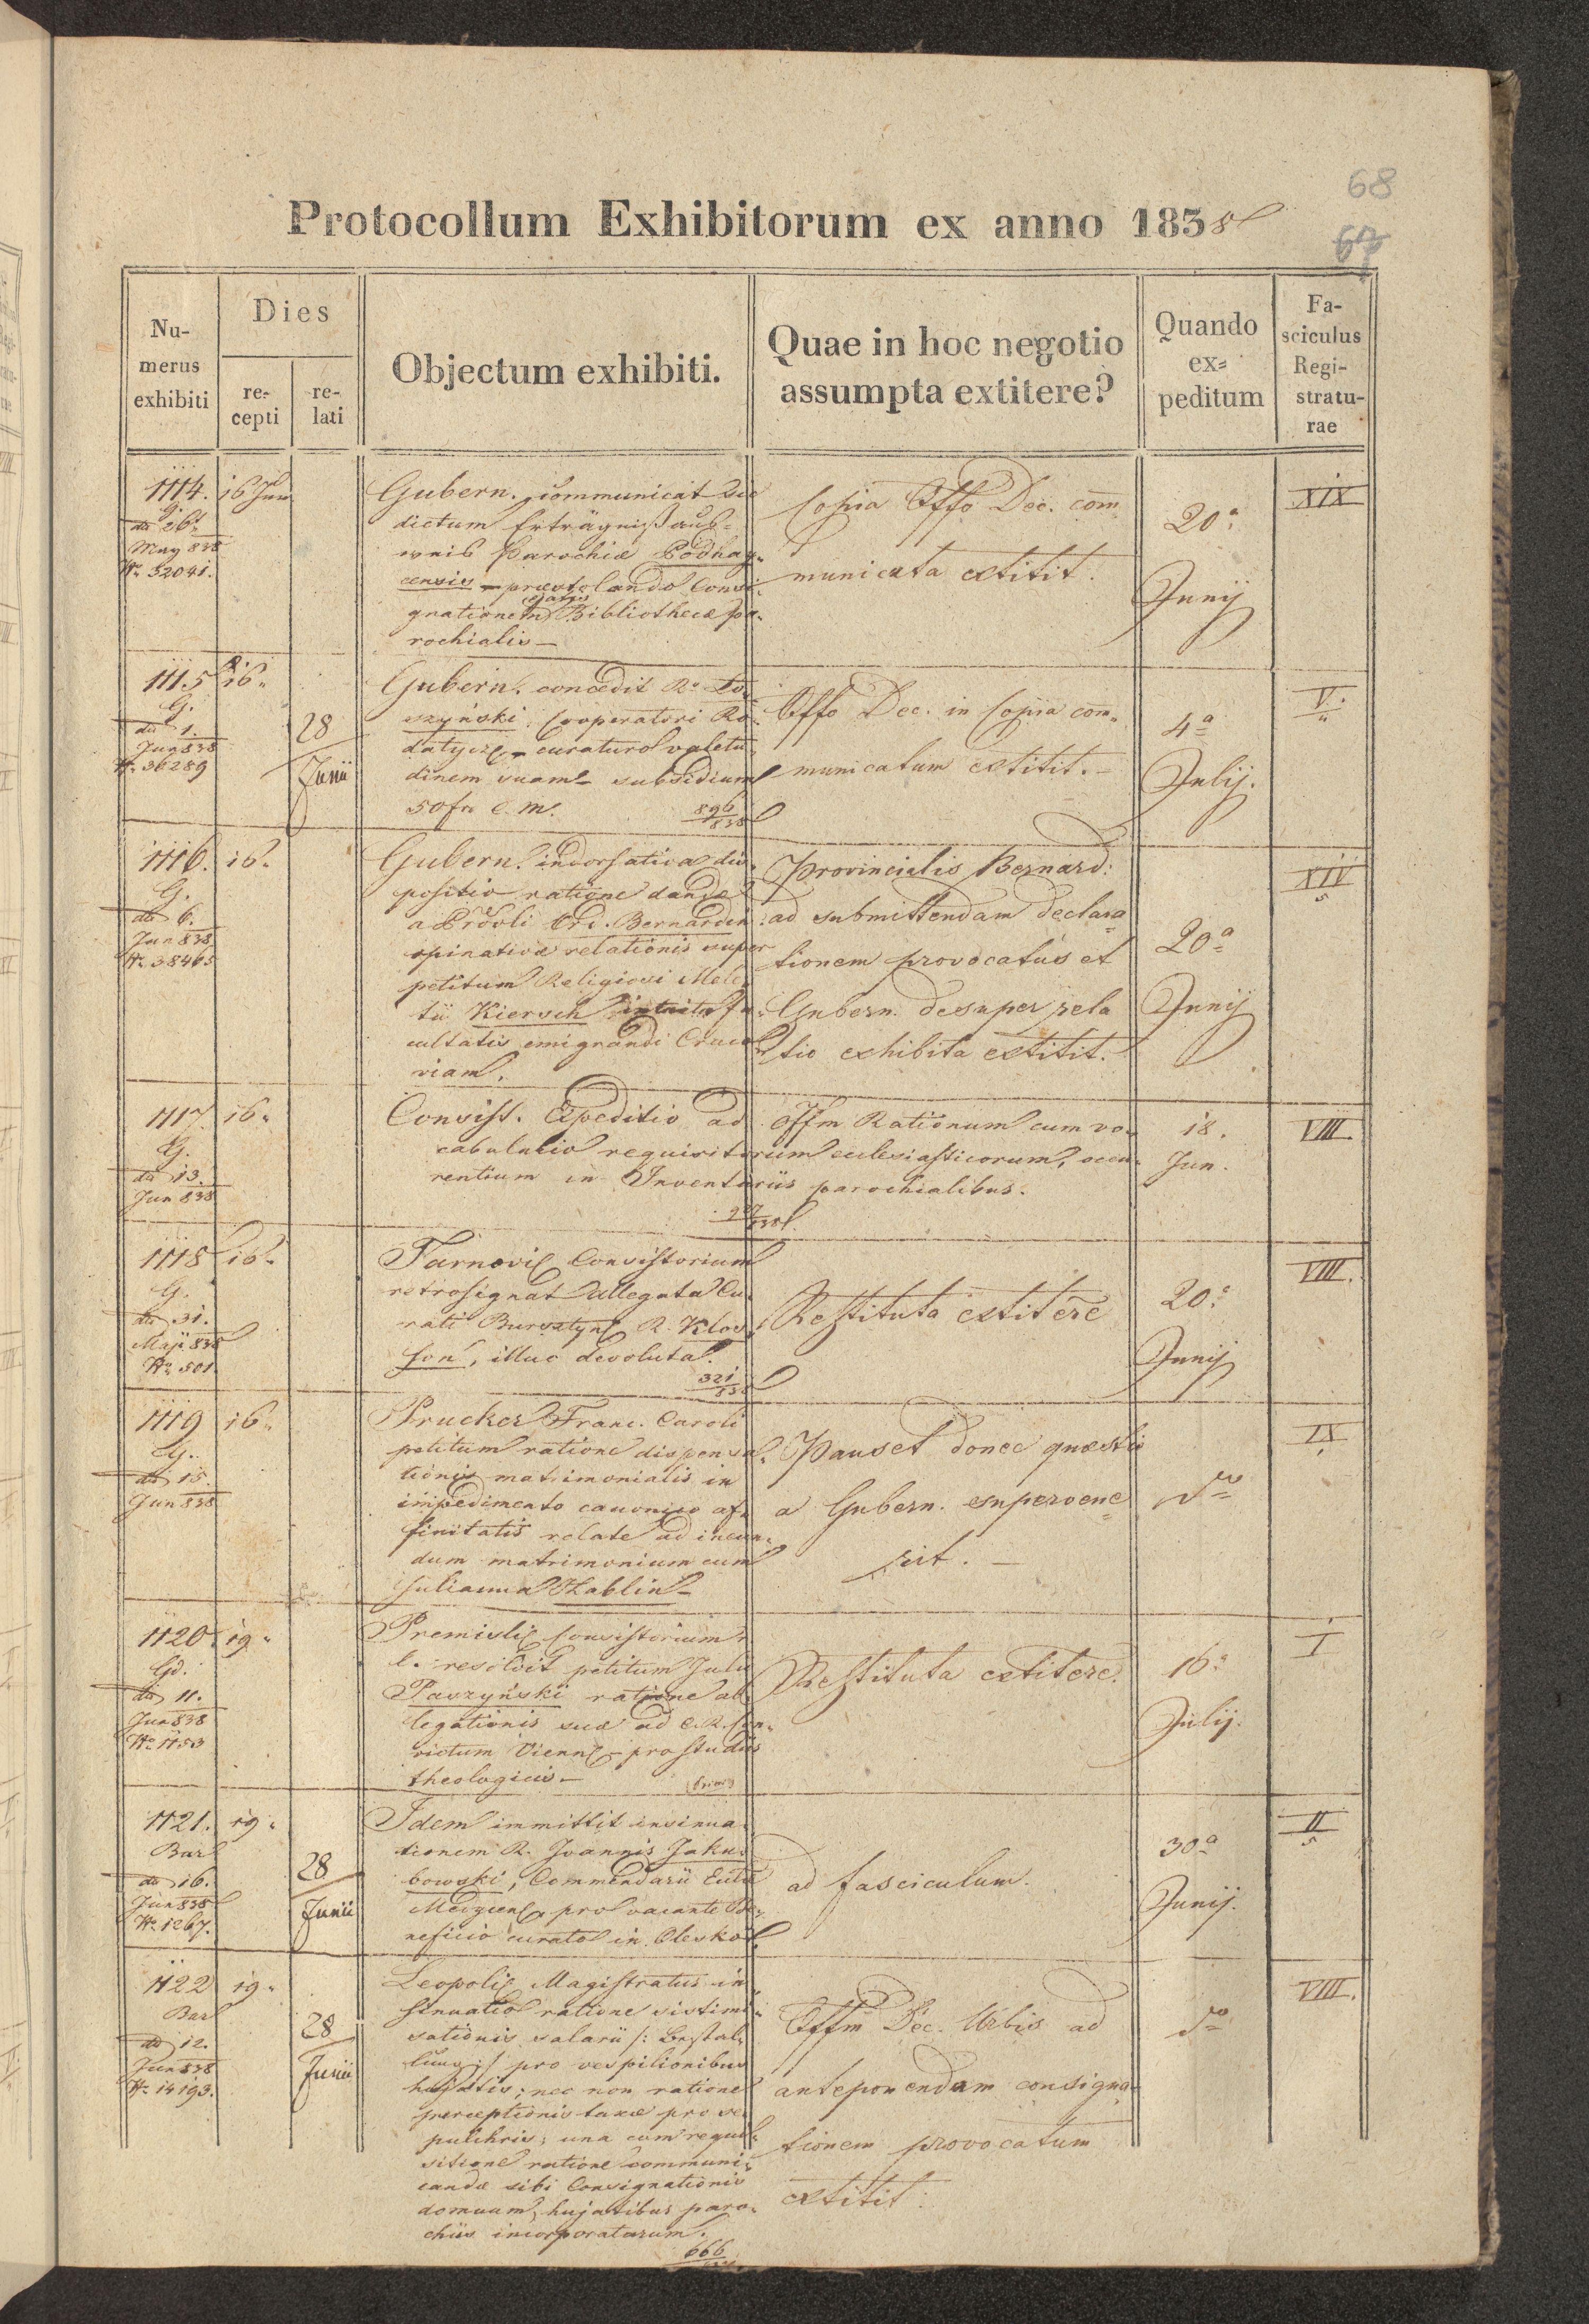 68
67
Protocollum Exhibitorum ex anno 1838
Numerus exhibiti
Dies
recepti
relati
Objectum exhibiti.
Quae in hoc negotio assumpta extitere?
Quando expeditum
Fasciculus Registraturae
1114.
G.
dto 26.
May 838
No 32041.
16 Jun
Gubern. communicat
dictum Erträgniß
Parochiæ Podhay-
censis – præstolando Consi-
gnationem Bibliothecæ pa-
rochialis –
Copia Offo Dec. com-
municata extitit.
20a
Junij
XIX
1115
G.
dto 1.
Jun 838
No 36289
16.
28
Junii
Gubern. concedit Ro
szyński Cooperatori Ro-
datycz – curaturo valetu-
dinem suam – subsidium
50 fr C. M.
896
838
Offo Dec. in Copia com-
municatum extitit. –
4a
Julij.
V.
1116.
G.
dto 6.
Jun 838
No 38465
16.
Gubern. indorsativa dis-
positio ratione dandæ
a Prövli Ord. Bernardin
opinativæ relationis super
petitum Religiosi Mele-
tii Kiersch intuitu fa-
cultatis emigrandi Craco-
viam.
Provincialis Bernard:
ad submittendam declara-
tionem provocatus et
Gubern. desuper rela-
tio exhibita extitit.
20a
Junij
XIV
1117.
G.
dto 13.
Jun 838
16.
Consist. Expeditio ad Offm Rationum cum vo-
cabulario requisitorum ecclesiasticorum, occu-
rentium in Inventariis parochialibus.
838
18.
Jun.
VIII.
1118
G.
dto 31.
Maji 838
No 501.
16.
Tarnovię Consistorium
retrosignat Allegata Cu-
rati Bursztyn R. Klos-
son, illuc devoluta.
321
838
Restituta extitere
20a
Junij
VIII.
1119
G.
dto 15.
Jun 838
16.
Prucker Franc. Caroli
petitum ratione dispensa-
tionis matrimonialis in
impedimento canonico af-
finitatis relate ad ineun-
dum matrimonium cum
Julianna Hablin –
Pauset donec quæstio
a Gubern. supervene-
rit. –
dto
IX
1120
Gd.
dto 11.
Jun 838
No 1153
19.
Premislię Consistorium
resolvit petitum Julii
Paszyński ratione ab-
legationis suæ ad C. R. Con-
victum Viennę – pro studiis
theologicis. –
Restituta extitere.
16a
Julij.
I
1121.
Bar
dto 16.
Jun 838
No 1267.
19.
28
Junii
Idem immittit insinua-
tionem R. Joannis Jaku-
bowski, Commendarii Eccla
pro vacante Be-
neficio curato in Olesko
ad fasciculum.
30a
Junij.
II
1122
Bar
dto 12.
Jun 838
No 14193.
19.
28
Junii
Leopolię Magistratus in-
sinuatio ratione sistemi-
sationis salarii /: Bestal-
lung :/ pro vespilionibus
hujatis; nec non ratione
perceptionis taxæ pro se-
pulchris; una cum requi-
sitione ratione communi-
candæ sibi Consignationis
domuum, hujatibus paro-
chiis incorporatarum.
666
Offm Dec. Urbis ad
anteponendam consigna-
tionem provocatum
extitit:
dto
VIII.